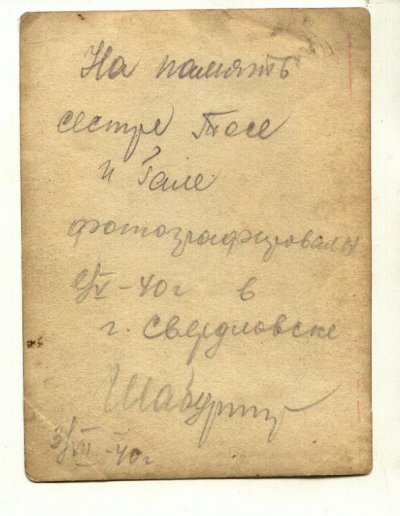 На память
сестре Тосе
и Гале
фотографировался
/V -40 г в
г. Свердловске
3/VII -40 г